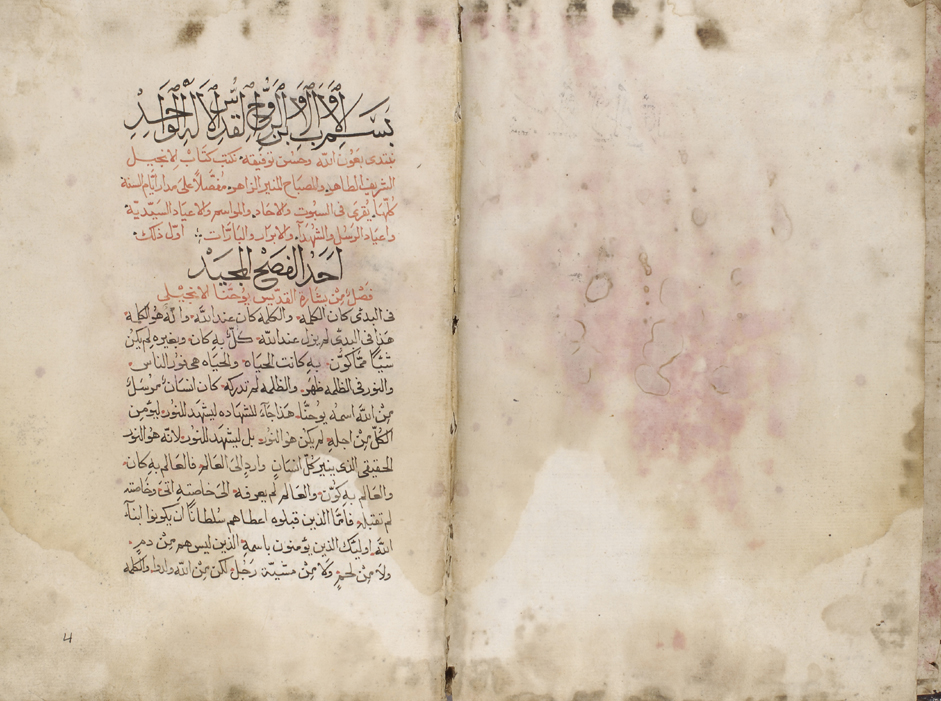 بسم الاب والابن والروح القدس الاله الواحد
نبتدى بعون الله وحسن توفيقه. نكتب كتاب الانجيل
الشريف الطاهر. والمصباح المنير الزاهر. مُفصَّلاً على مدار ايام السنة
كلها. يُقرى فى السبوت والاحاد. والمواسم والاعياد السيّدية
واعياد الرسل والشهدآ. والابرار والبارات ∴ اوّل ذلك.
احد الفصح المجيد
فصل من بشارة القديس يوحنا الانجيلى
فى البدى كان الكلمه. والكلمه كان عند الله. والٰه هو الكلمه
هذا فى البدى لم يزل عند الله. كلٌ به كان. وبغيره لم يكن
شيئًا ممّا كوّن. به كانت الحياه. والحياه هى نور الناس
والنور فى الظلمه ظهر. والظلمه لم تدركه. كان انسانٌ مرسَلٌ
من الله اسمه يوحنا. هذا جآء للشهاده ليشهد للنور. ليؤمن
الكلّ من اجله. لم يكن هو النور. بل ليشهد للنور. لانه هو النور
الحقيقى الذى ينير كلّ انسانٍ واردٍ الى العالم. فالعالم به كان
والعالم به كوّن. والعالم لم يعرفه. الى خاصته اتى. وخاصته
لم تقبله. فامّا الذين قبلوه اعطاهم سُلطانًا ان يكونوا ابنآ
الله. اوليك الذين يؤمنون باسمه. الذين ليس هم من دمٍ.
ولا من لحمٍ. ولا من مشيّة رجُلٍ. لكن من الله وُلدوا. والكلمه
4